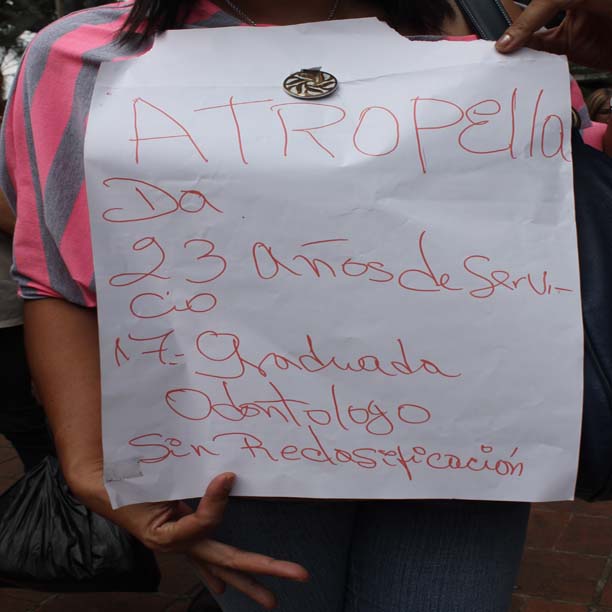 ATROPElla
Da
23 años de Servi-
cio
17- Graduada
Odontologo
Sin Reclasificación